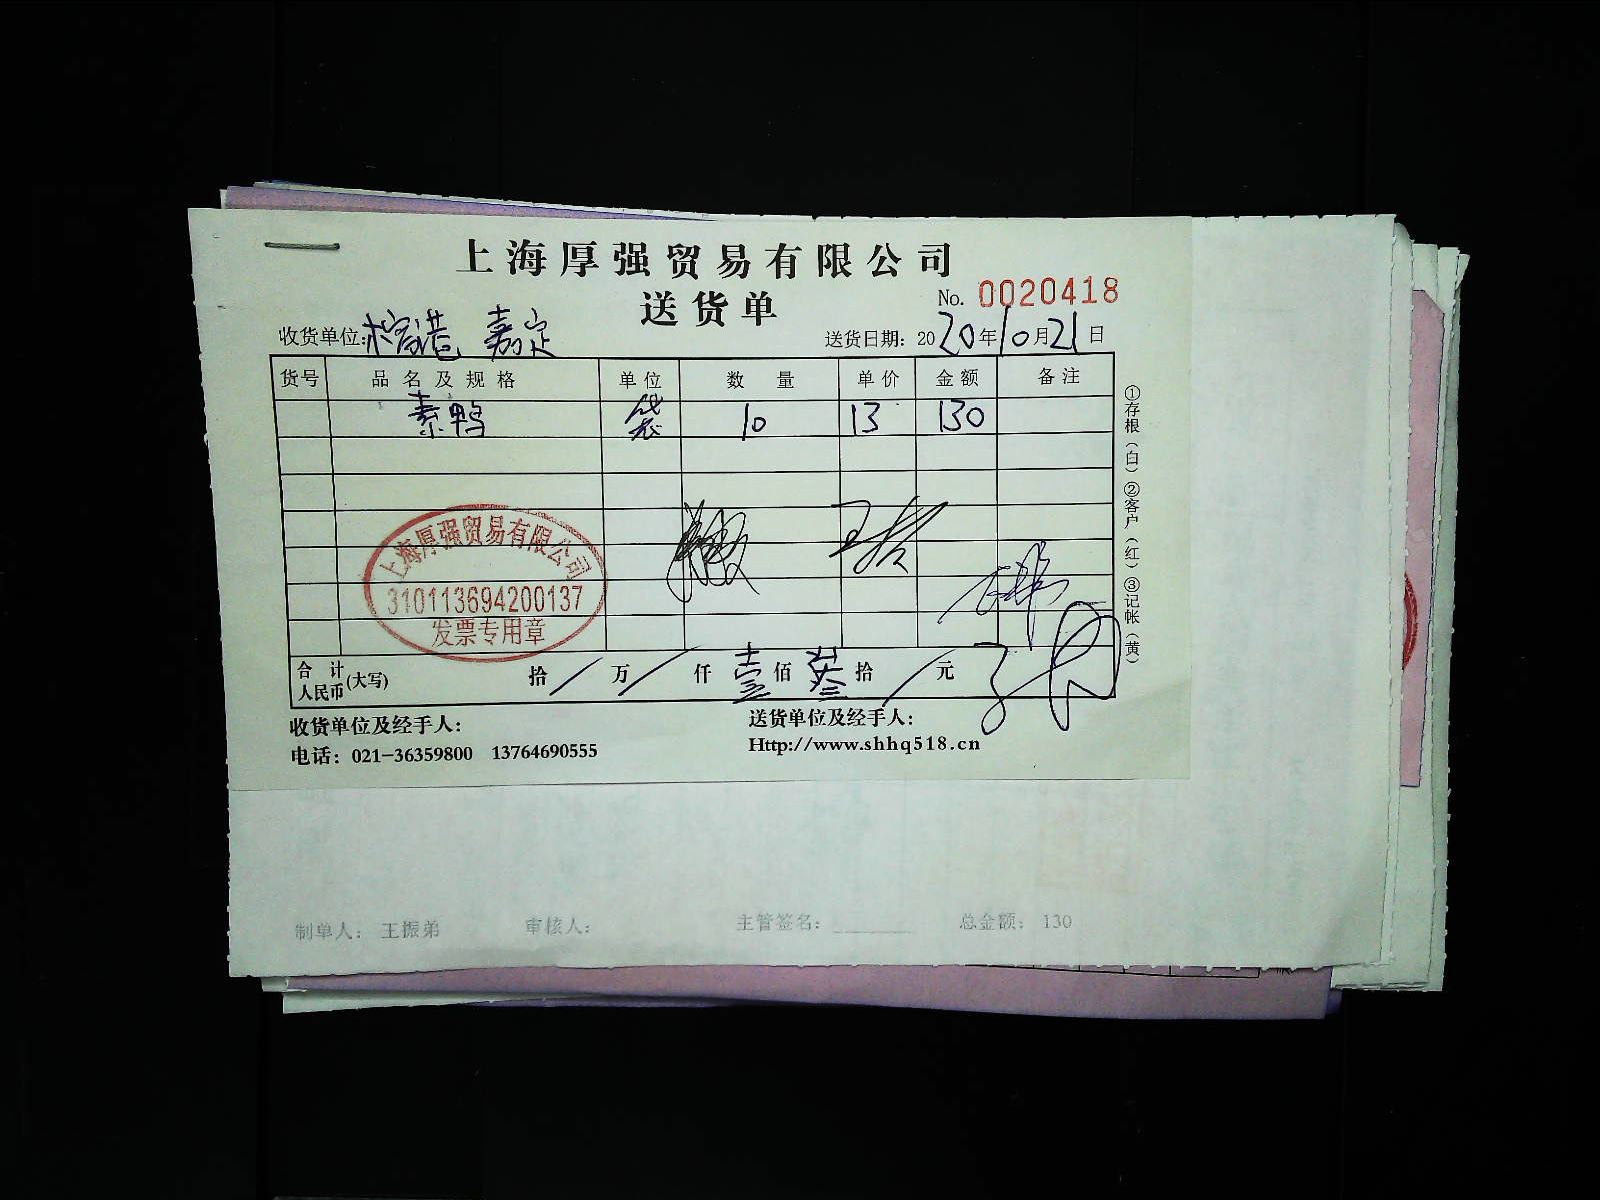 上海厚强贸易有限公司
送货单
No. 0020418
收货单位: 榕港 嘉定
送货日期: 2020年10月21日
货号 品名及规格 单位 数量 单价 金额 备注
素鸭 袋 10 13 130
①存根(白)②客户(红)③记帐(黄)
上海厚强贸易有限公司
310113694200137
发票专用章
合计人民币(大写) 拾/万/仟壹佰叁拾/元
收货单位及经手人:
送货单位及经手人:
电话: 021-36359800 13764690555
Http://www.shhq518.cn
制单人: 王振弟 审核人: 主管签名: 总金额: 130